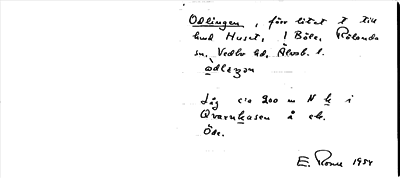 Odlingen, förr litet t till
hmd Huset, 1 Böle, Rölanda
sn, Vedbo hd, Älvsb. l.
odlezan
Låg c:a 200 m N k i
Qvarnkasen å ek.
Öde.
E. Rome 1954